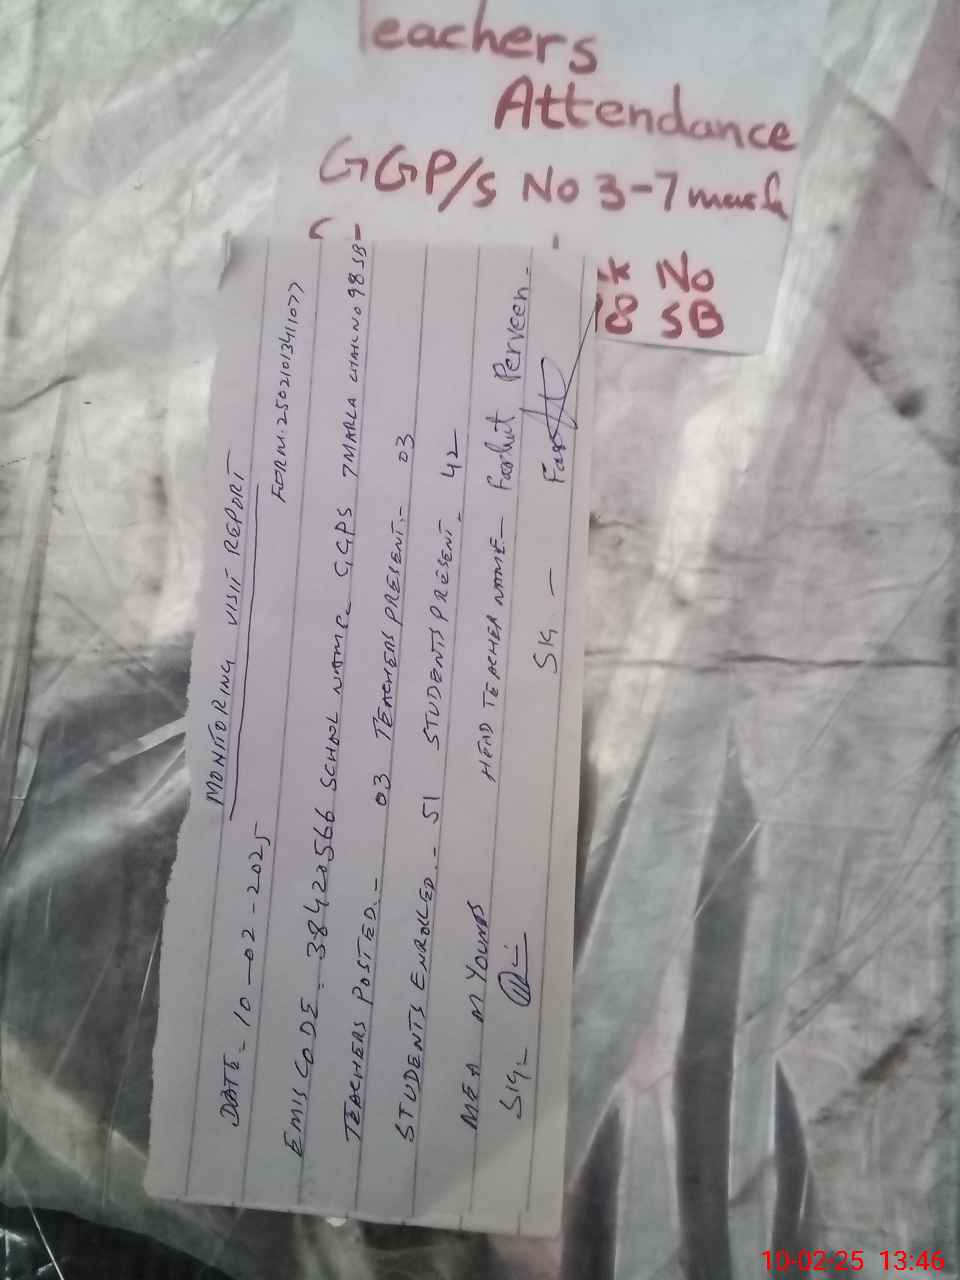 Teachers
Attendance
GGP/S No 3-7 marla
No
18 SB
MONITORING VISIT REPORT
DATE - 10-02-2025 FORM. 2502101341107?
EMIS CODE - 38420566 SCHOOL NAME - GGPS 7 MARLA CHAK NO 98 SB
TEACHERS POSTED - 03 TEACHERS PRESENT - 03
STUDENTS ENROLLED - 51 STUDENTS PRESENT - 42
MEA M YOUNAS HEAD TEACHER NAME - Farhat Perveen
SIG - SIG -
10-02-25 13:46